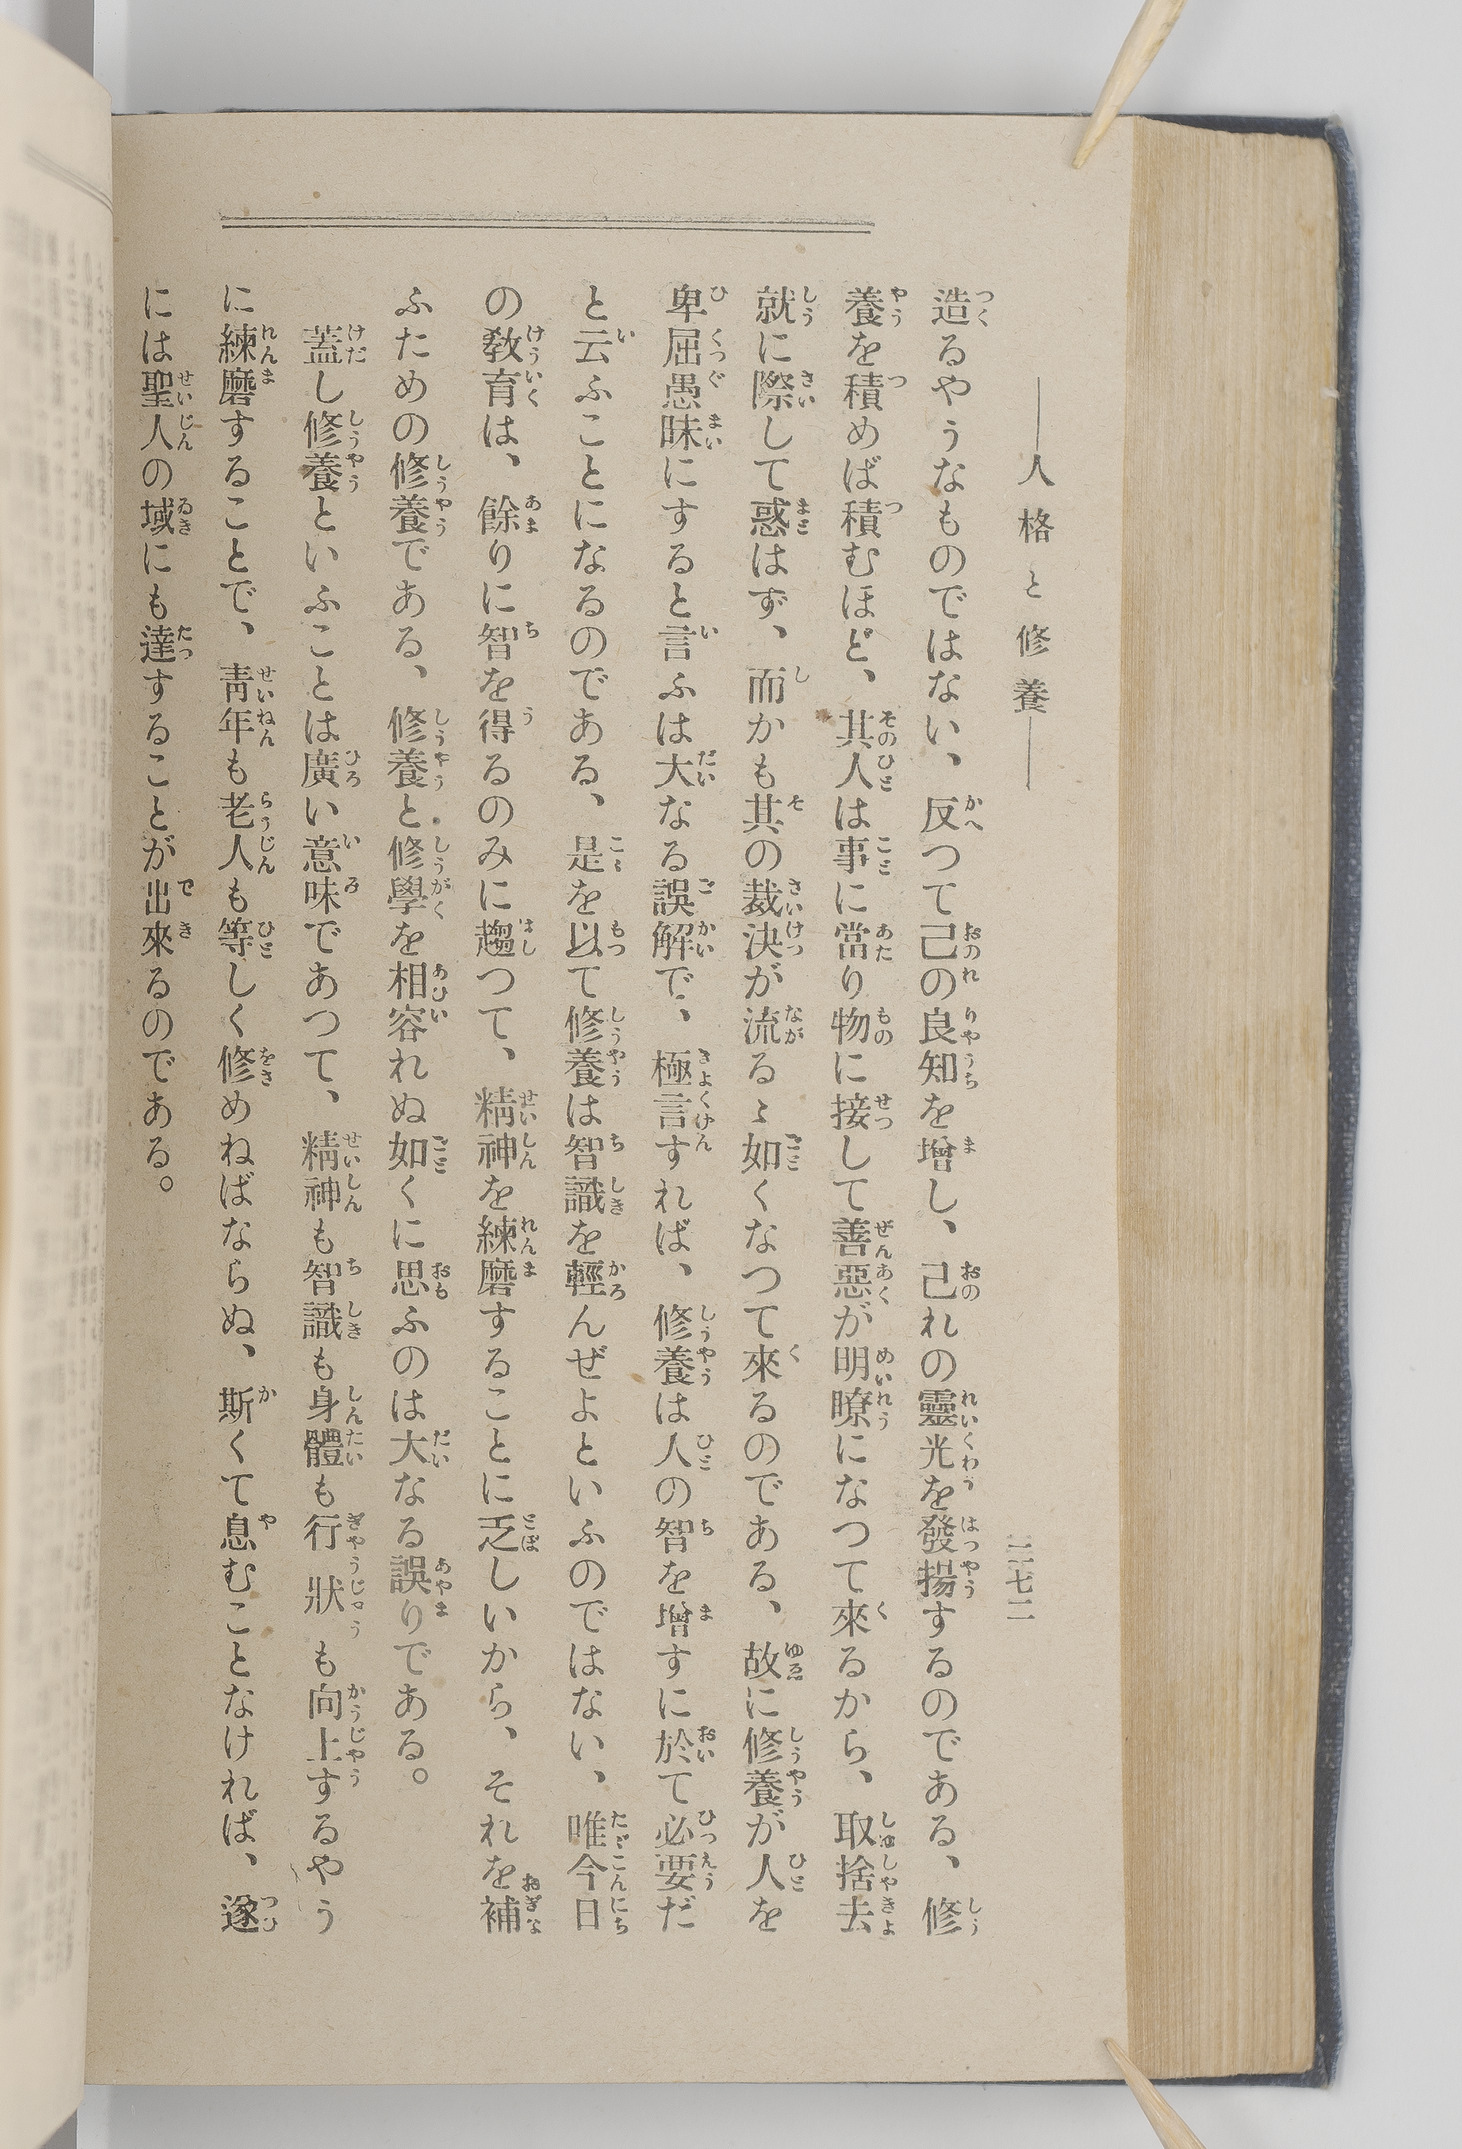 ―人格と修養―
三七二
造るやうなものではない、反つて己の良知を增し、己れの靈光を發揚するのである、修
養を積めば積むほど、其人は事に當り物に接して善惡が明瞭になつて來るから、取捨去
就に際して惑はず、而かも其の裁決が流るゝ如くなつて來るのである、故に修養が人を
卑屈愚昧にすると言ふは大なる誤解で、極言すれば、修養は人の智を增すに於て必要だ
と云ふことになるのである、是を以て修養は智識を輕んぜよといふのではない、唯今日
の敎育は、餘りに智を得るのみに趨つて、精神を練磨することに乏しいから、それを補
ふための修養である、修養と修學を相容れぬ如くに思ふのは大なる誤りである。
蓋し修養といふことは廣い意味であつて、精神も智識も身體も行狀も向上するやう
に練磨することで、靑年も老人も等しく修めねばならぬ、斯くて息むことなければ、遂
には聖人の域にも達することが出來るのである。